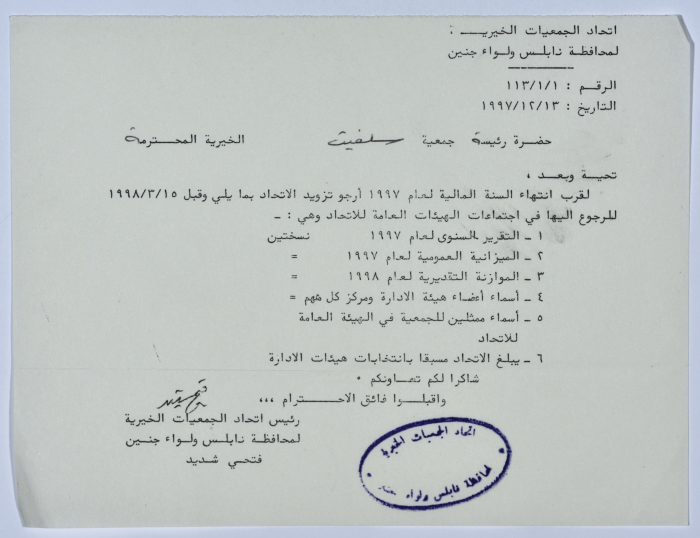 اتحاد الجمعيات الخيريــة :
لمحافظة نابلس ولواء جنين
الرقـم : ١١٣/١/١
التاريخ : ١٩٩٧/١٢/١٣
حضرة رئيسة جمعية سلفيت الخيرية المحـترمـة
تحيـة وبعـد ،
لقرب انتهاء السنة المالية لـعام ١٩٩٧ أرجو تزويد الاتحاد بما يلي وقبل ١٩٩٨/٣/١٥
للرجوع اليها في اجتماعات الهيئات العامة للاتحاد وهي : ـ
١ ـ التقرير السنوى لـعام ١٩٩٧ نسختين
٢ ـ الميزانية العمومية لـعام ١٩٩٧ =
٣ ـ الموازنة التقديرية لـعام ١٩٩٨ =
٤ ـ أسماء أعضاء هيئة الادارة ومركز كل منهم =
٥ ـ أسماء ممثلين للجمعية في الهيئة العامة
للاتحاد
٦ ـ يبلغ الاتحاد مسبقا بانتخابات هيئات الادارة
شاكرا لكم تعاونكم ٠
واقبلـوا فائق الاحـتـرام ،،،
رئيس اتحاد الجمعيات الخيرية
لمحافظة نابلس ولواء جنين
فتحي شديد
اتحاد الجمعيات الخيرية
لمحافظة نابلس ولواء جنين